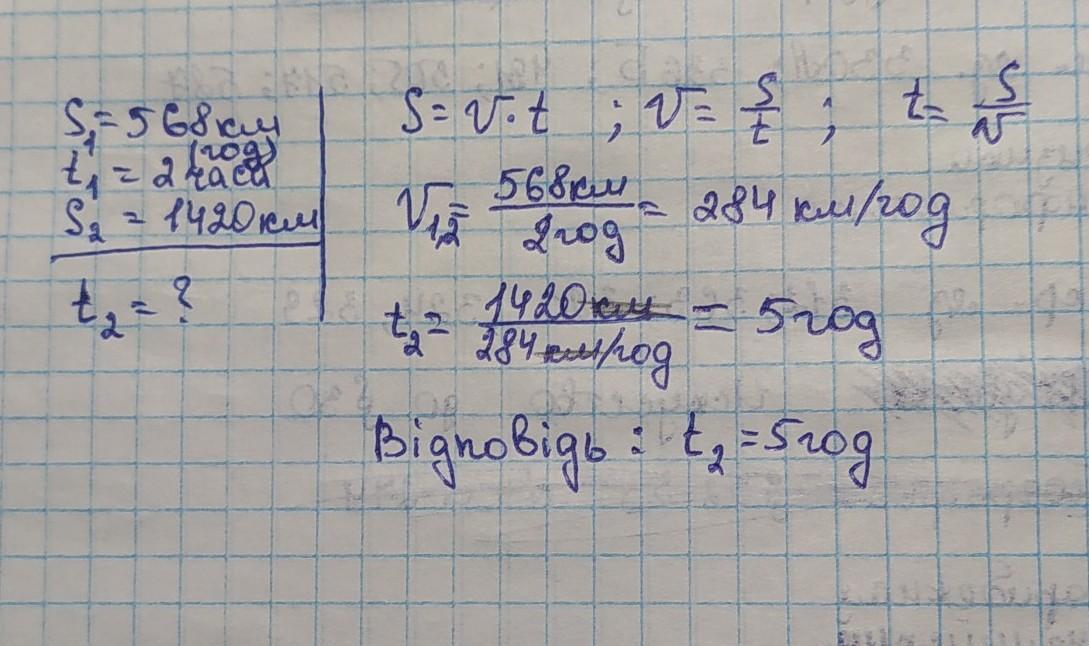 S₁ = 568 км
(год)
t₁ = 2 часа
S₂ = 1420 км
t₂ = ?
S = V · t ; V = S/t ; t = S/V
V₁,₂ = 568 км / 2 год = 284 км/год
t₂ = 1420 км / 284 км/год = 5 год
Відповідь : t₂ = 5 год